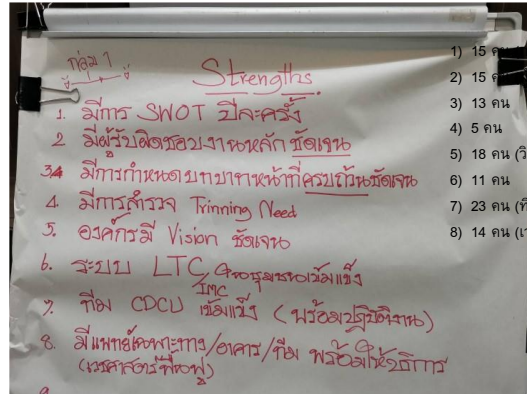 กลุ่ม 1
Strengths
1. มีการ SWOT ปีละครั้ง
2 มีผู้รับผิดชอบงานหลัก ชัดเจน
3. มีการกำหนดบทบาทหน้าที่ครบถ้วนชัดเจน
4. มีการสำรวจ Trinning Need
5. องค์กรมี Vision ชัดเจน
6. ระบบ LTC ชุมชนเข้มแข็ง
IMC
7. ทีม CDCU เข้มแข็ง (พร้อมปฏิบัติงาน)
8. มีแพทย์เฉพาะทาง/อาคาร/ทีม พร้อมให้บริการ
(เวชศาสตร์ฟื้นฟู)
9
1) 15 คน
2) 15
3) 13 คน
4) 5 คน
5) 18 คน (วิ
6) 11 คน
7) 23 คน (ที
8) 14 คน (เว